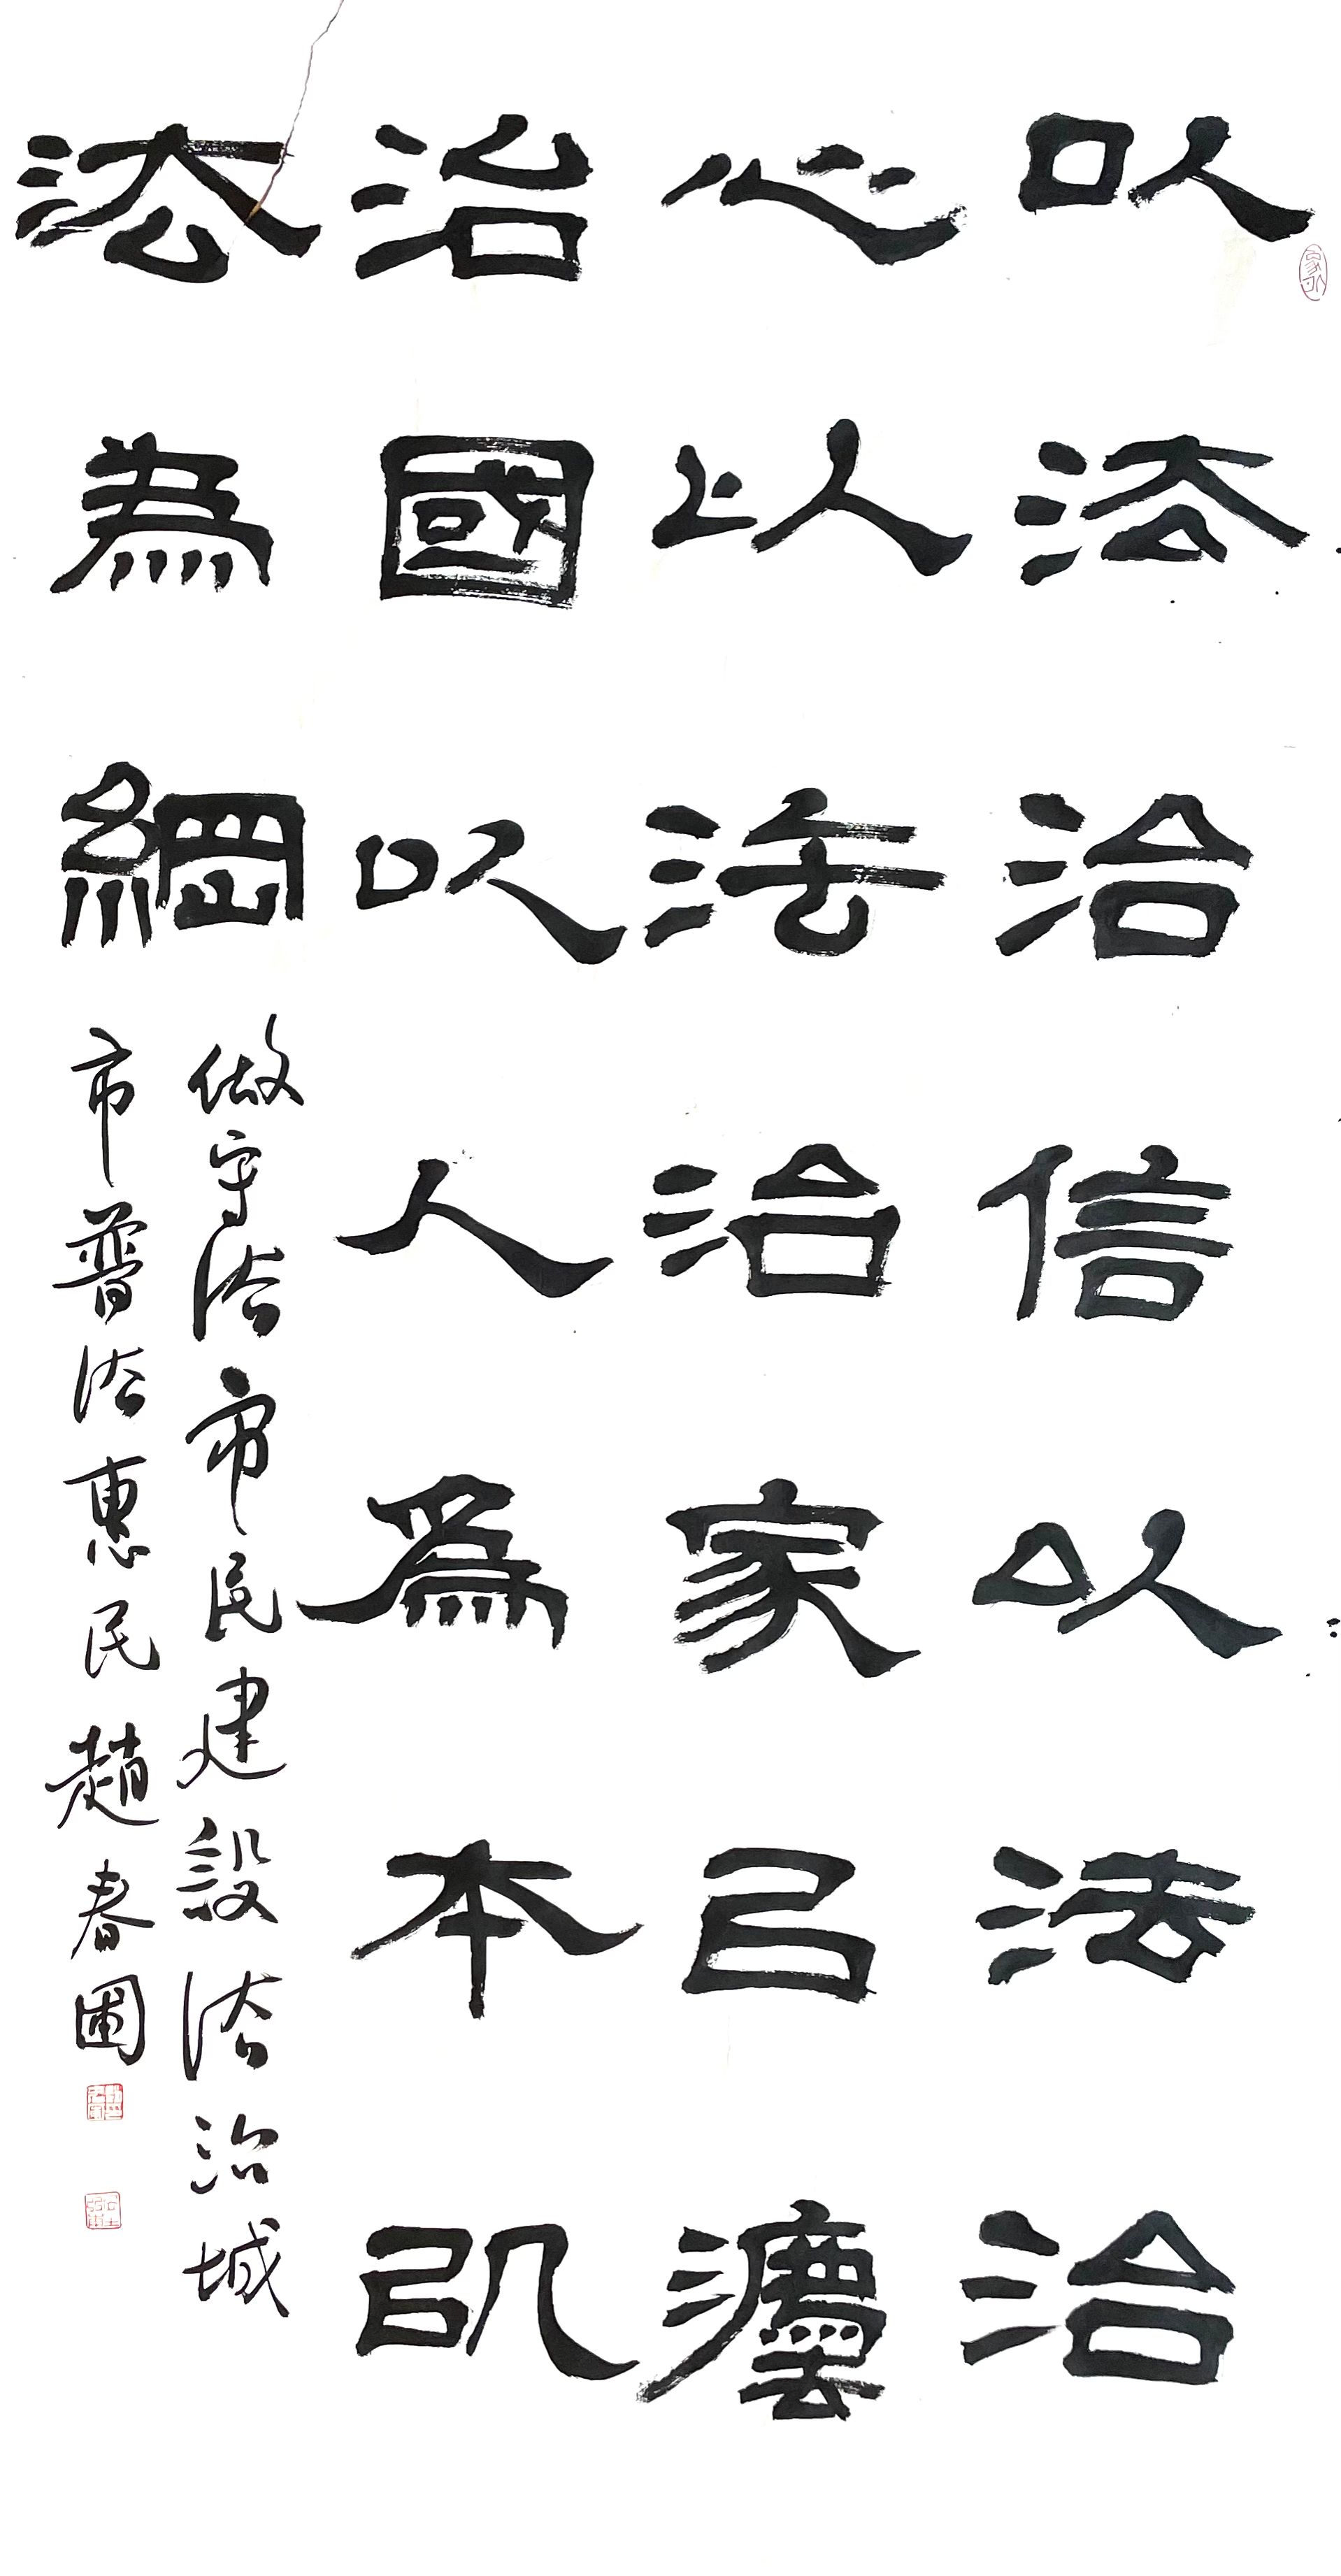 以法治信以法治
心以法治家㠯灋
治國以人爲本以
法為綱
做守法市民建設法治城
市普法惠民 趙春圃